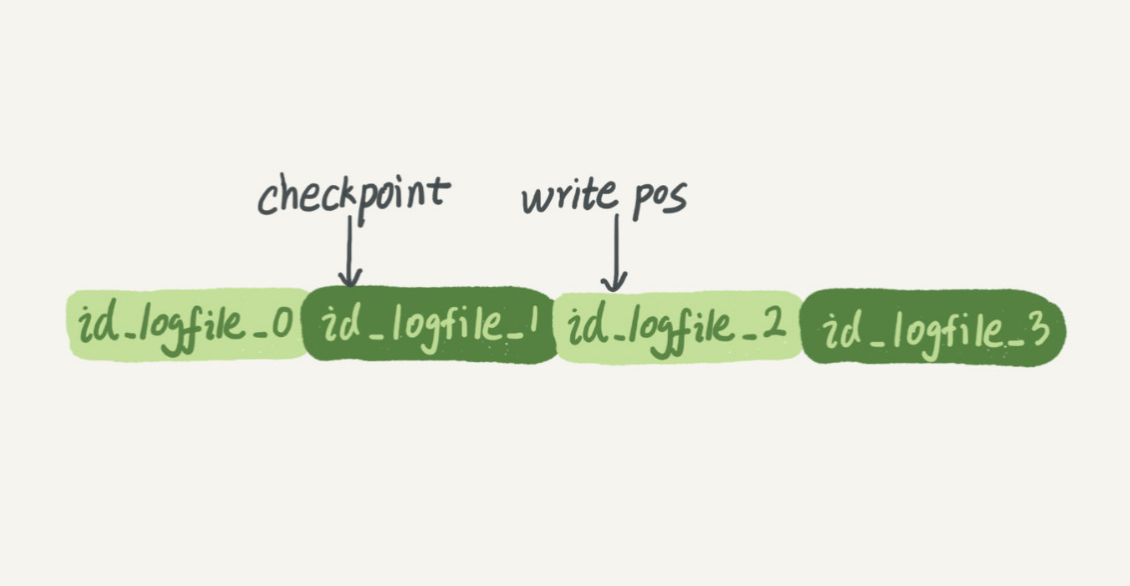 checkpoint write pos
id_logfile_0 id_logfile_1 id_logfile_2 id_logfile_3